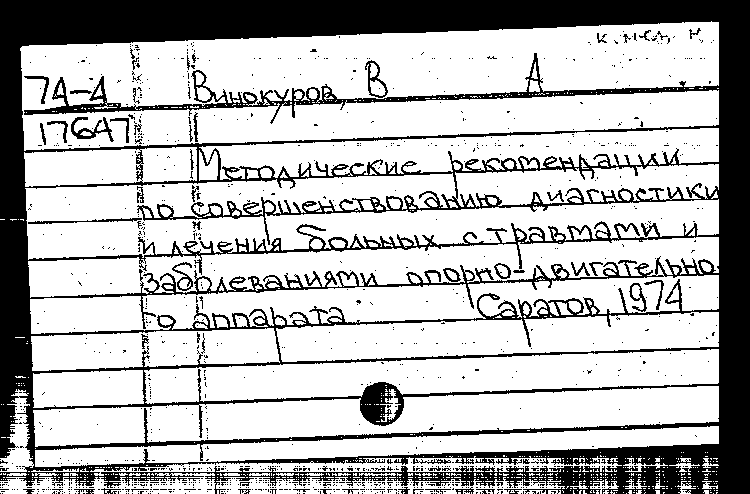 К. мед. н.
74-4 Винокуров, В А
17647
Методические рекомендации
по совершенствованию диагностики
и лечения больных с травмами и
заболеваниями опорно-двигательно-
го аппарата. Саратов, 1974